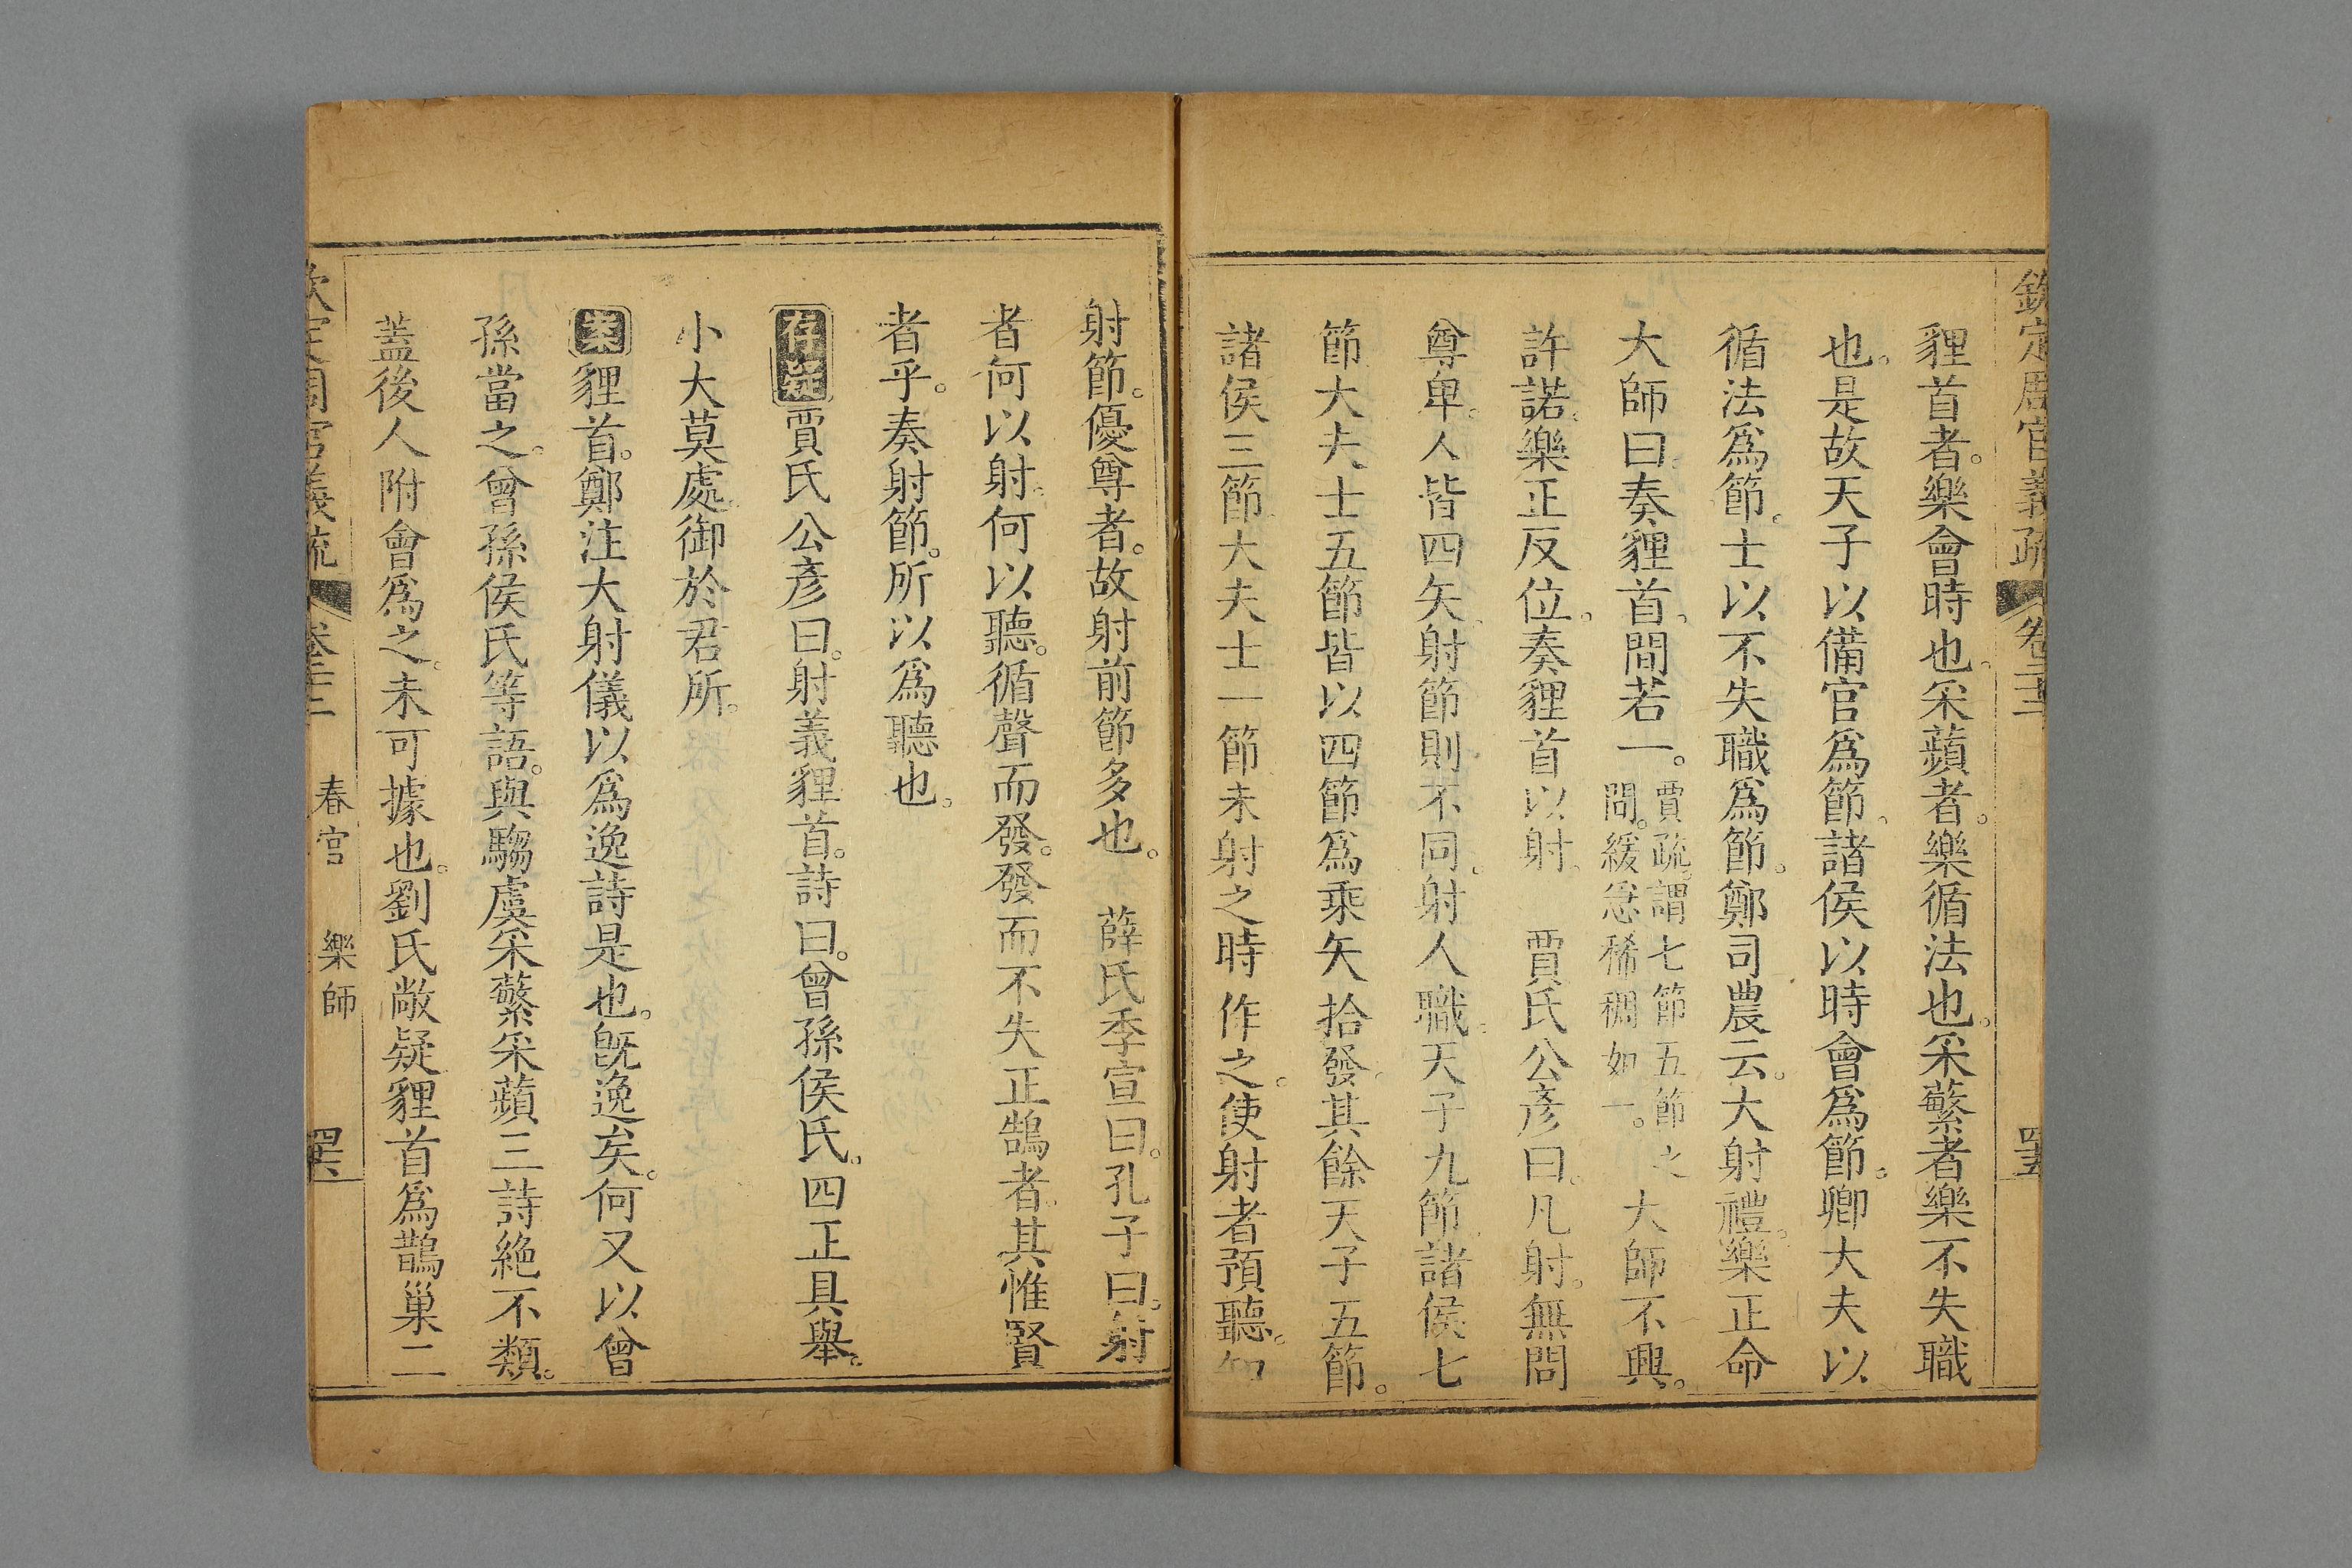 欽定周官義疏 卷二十二
貍首者。樂會時也。采蘋者。樂循法也。采蘩者樂不失職
也。是故天子以備官爲節。諸侯以時會爲節。卿大夫以
循法爲節。士以不失職爲節。鄭司農云。大射禮。樂正命
大師曰。奏貍首。間若一。
賈疏。謂七節五節之
間。緩急稀稠如一。
大師不興。
許諾。樂正反位。奏貍首以射。 賈氏公彥曰。凡射。無問
尊卑。人皆四矢。射節則不同。射人職。天子九節。諸侯七
節大夫士五節。皆以四節爲乘矢拾發。其餘天子五節。
諸侯三節。大夫士一節未射之時作之。使射者預聽。知
射節。優尊者。故射前節多也。 薛氏季宣曰。孔子曰。射
者何以射。何以聽。循聲而發。發而不失正鵠者。其惟賢
者乎。奏射節。所以爲聽也。
存疑 賈氏公彥曰。射義貍首。詩曰。曾孫侯氏。四正具舉。
小大莫處。御於君所。
案 貍首。鄭注大射儀以爲逸詩是也。旣逸矣。何又以曾
孫當之。曾孫侯氏等語。與騶虞采蘩采蘋三詩絶不類。
蓋後人附會爲之。未可據也。劉氏敞疑貍首爲鵲巢二
定周官義疏 春官 樂師